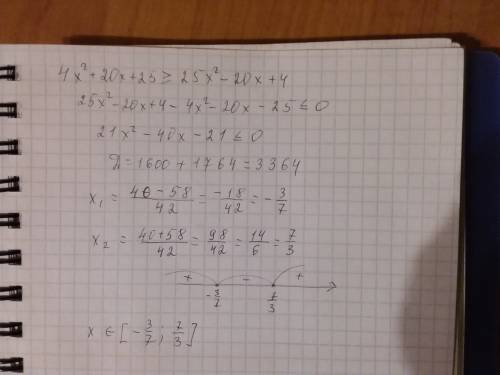 4x² + 20x + 25 ≥ 25x² - 20x + 4
25x² - 20x + 4 - 4x² - 20x - 25 ≤ 0
21x² - 40x - 21 ≤ 0
Д = 1600 + 1764 = 3364
x₁ = (40 - 58)/42 = -18/42 = -3/7
x₂ = (40 + 58)/42 = 98/42 = 14/6 = 7/3
+ - +
-3/7 7/3
x ∈ [-3/7; 7/3]